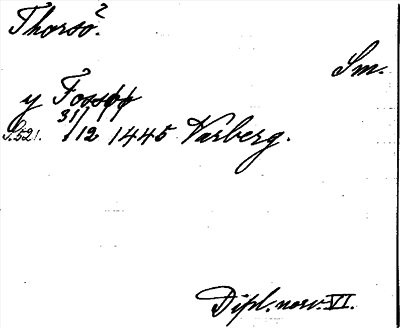 Thorsö?
Sm.
y Fossøø
S. 521. 31/12 1445 Varberg.
Dipl. norv. VI.